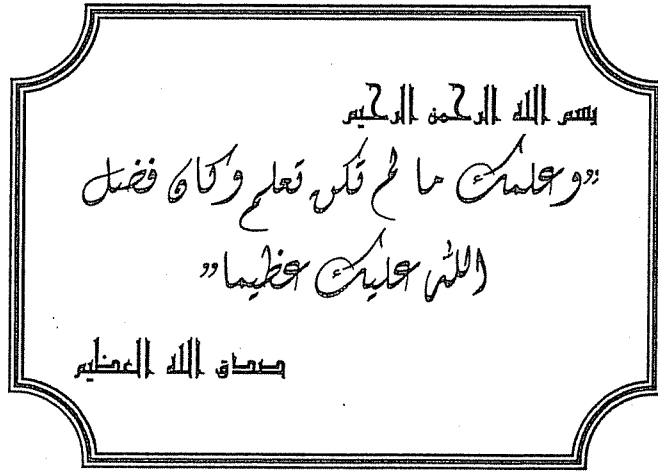 بسم الله الرحمن الرحيم
"وعلمك ما لم تكن تعلم وكان فضل
الله عليك عظيما"
صدق الله العظيم